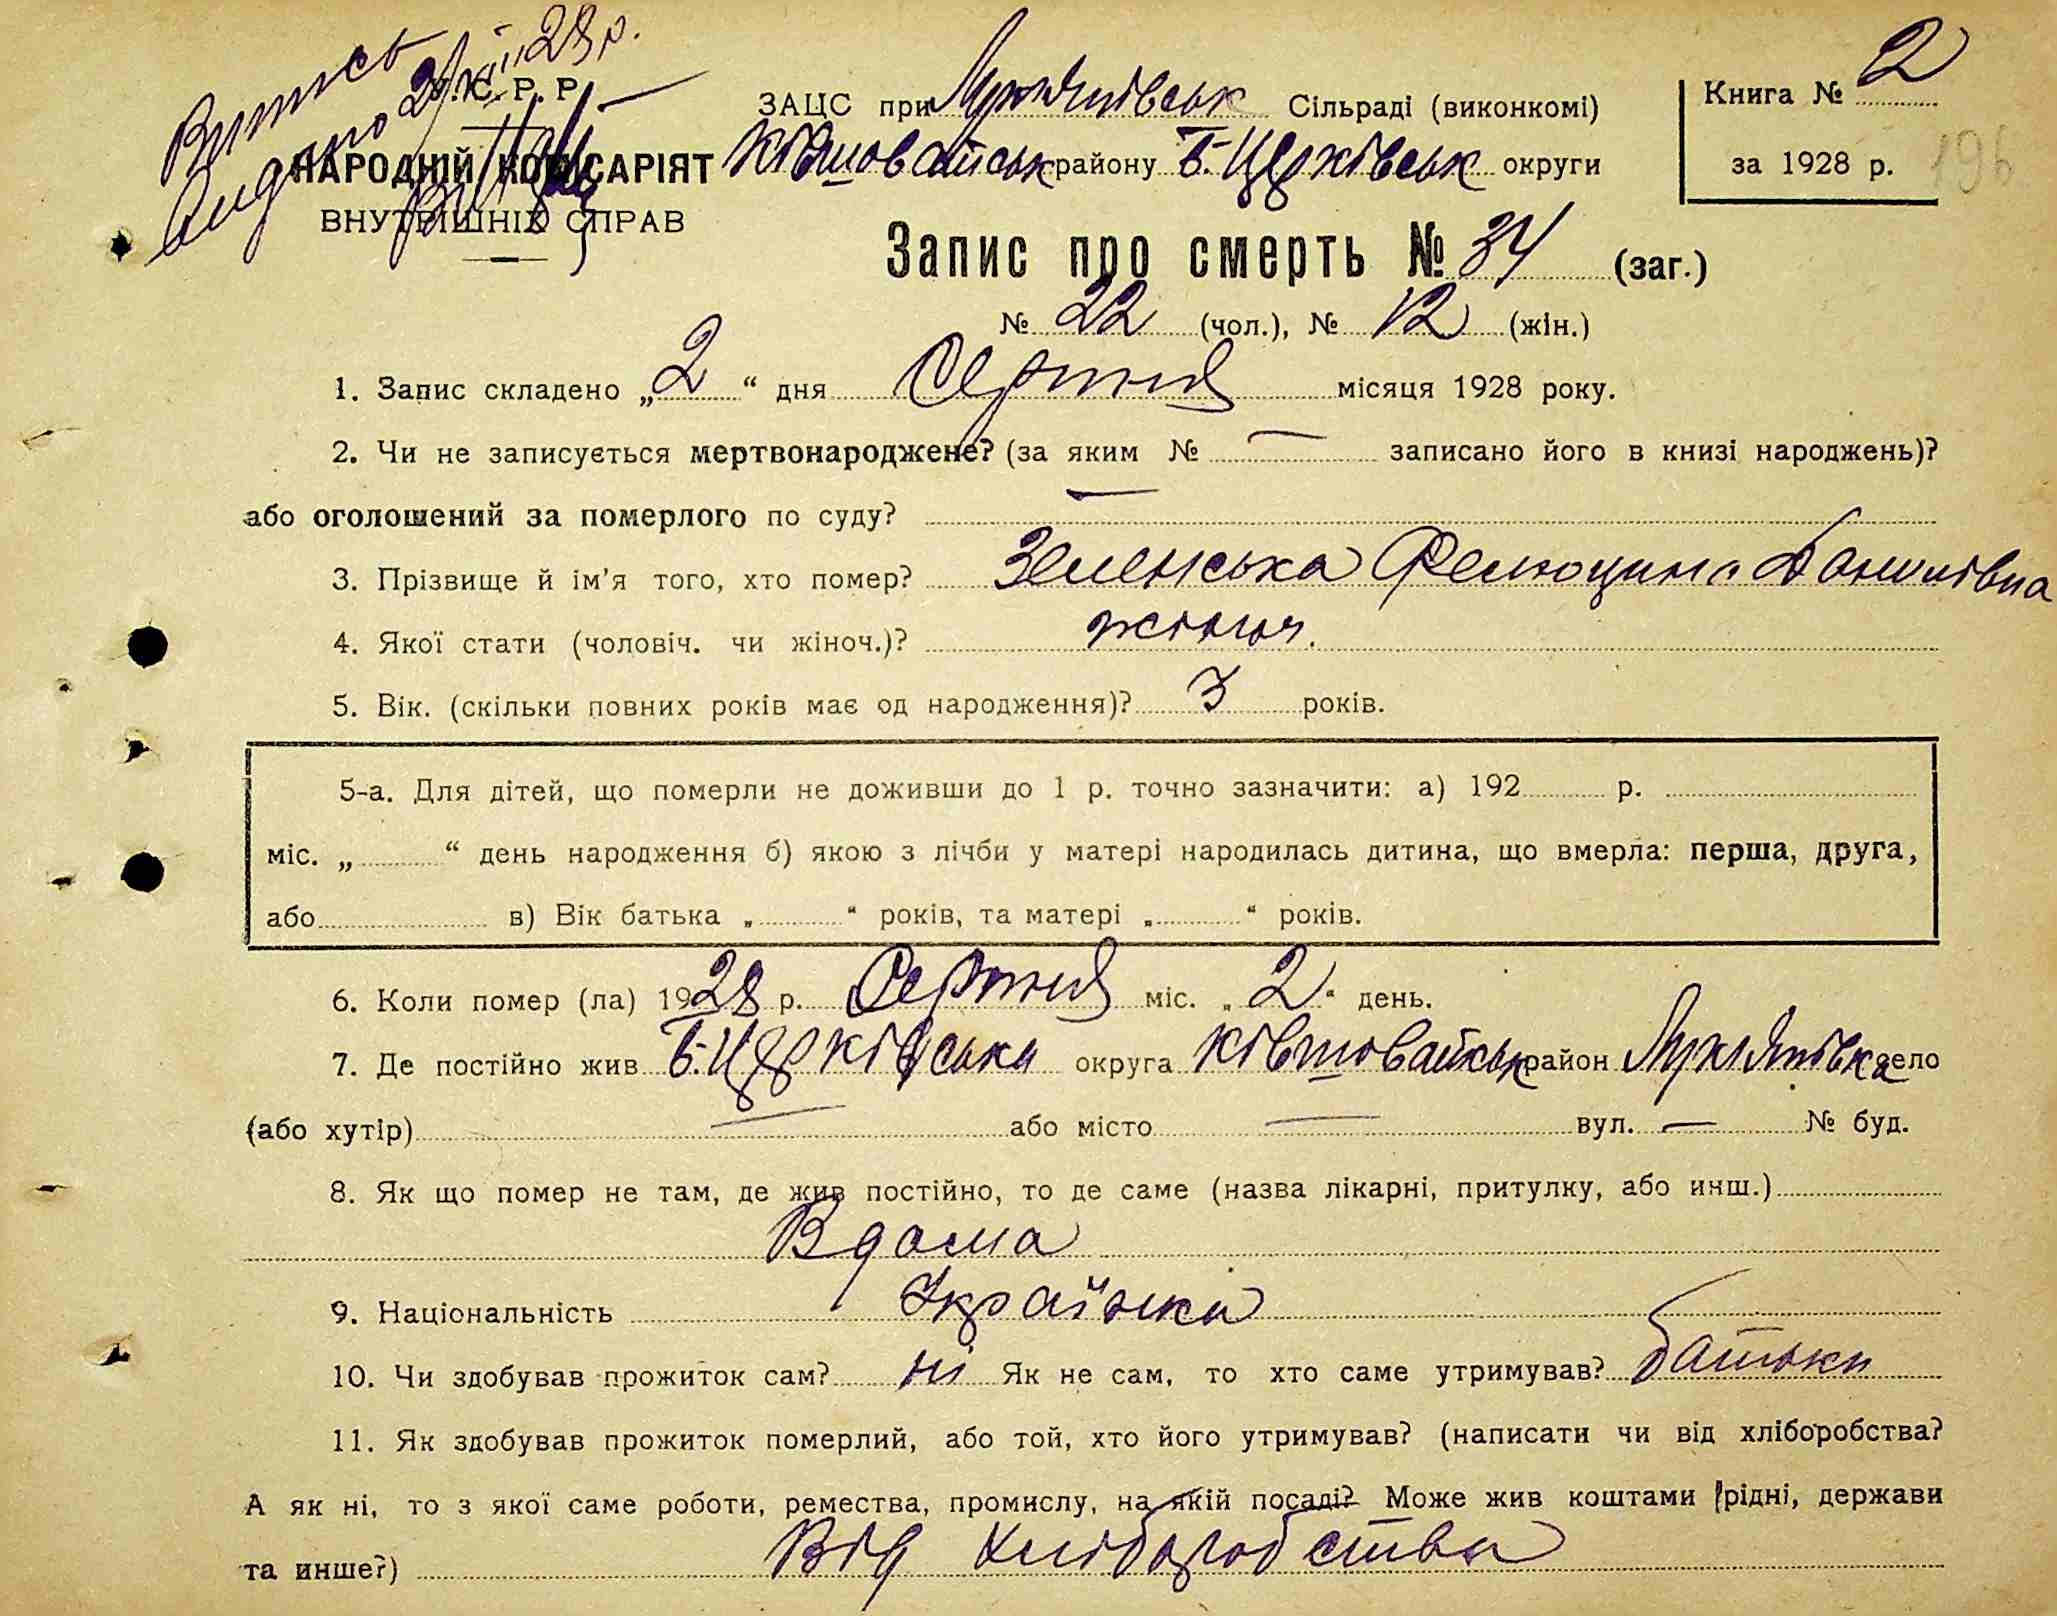 Витись
видано 29/XII 28 р.
У.С.Р.Р.
НАРОДНІЙ КОМІСАРІЯТ
ВНУТРІШНІХ СПРАВ
ЗАЦС при Лук'янівськ Сільраді (виконкомі)
Ківшовайськ району Б-Церківськ округи
Книга № 2
за 1928 р.
196
Запис про смерть № 34 (заг.)
№ 22 (чол.), № 12 (жін.)
1. Запис складено „ 2 “ дня Серпня місяця 1928 року.
2. Чи не записується мертвонароджене? (за яким № — записано його в книзі народжень)?
або оголошений за померлого по суду? —
3. Прізвище й ім'я того, хто помер? Зеленська Фелюцина Данилівна
4. Якої стати (чоловіч. чи жіноч.)? жіноч.
5. Вік. (скільки повних років має од народження)? 3 років.
5-а. Для дітей, що померли не доживши до 1 р. точно зазначити: а) 192 р.
міс. „ “ день народження б) якою з лічби у матері народилась дитина, що вмерла: перша, друга,
або в) Вік батька „ “ років, та матері „ “ років.
6. Коли помер (ла) 1928 р. Серпня міс. „ 2 “ день.
7. Де постійно жив Б.-Церківська округа Ківшовайськ район Лук'янівка село
(або хутір) — або місто — вул. — № буд.
8. Як що помер не там, де жив постійно, то де саме (назва лікарні, притулку, або инш.)
Вдома
9. Національність Українка
10. Чи здобував прожиток сам? ні Як не сам, то хто саме утримував? батьки
11. Як здобував прожиток померлий, або той, хто його утримував? (написати чи від хліборобства?
А як ні, то з якої саме роботи, ремества, промислу, на якій посаді? Може жив коштами рідні, держави
та инше?) Від хліборобства